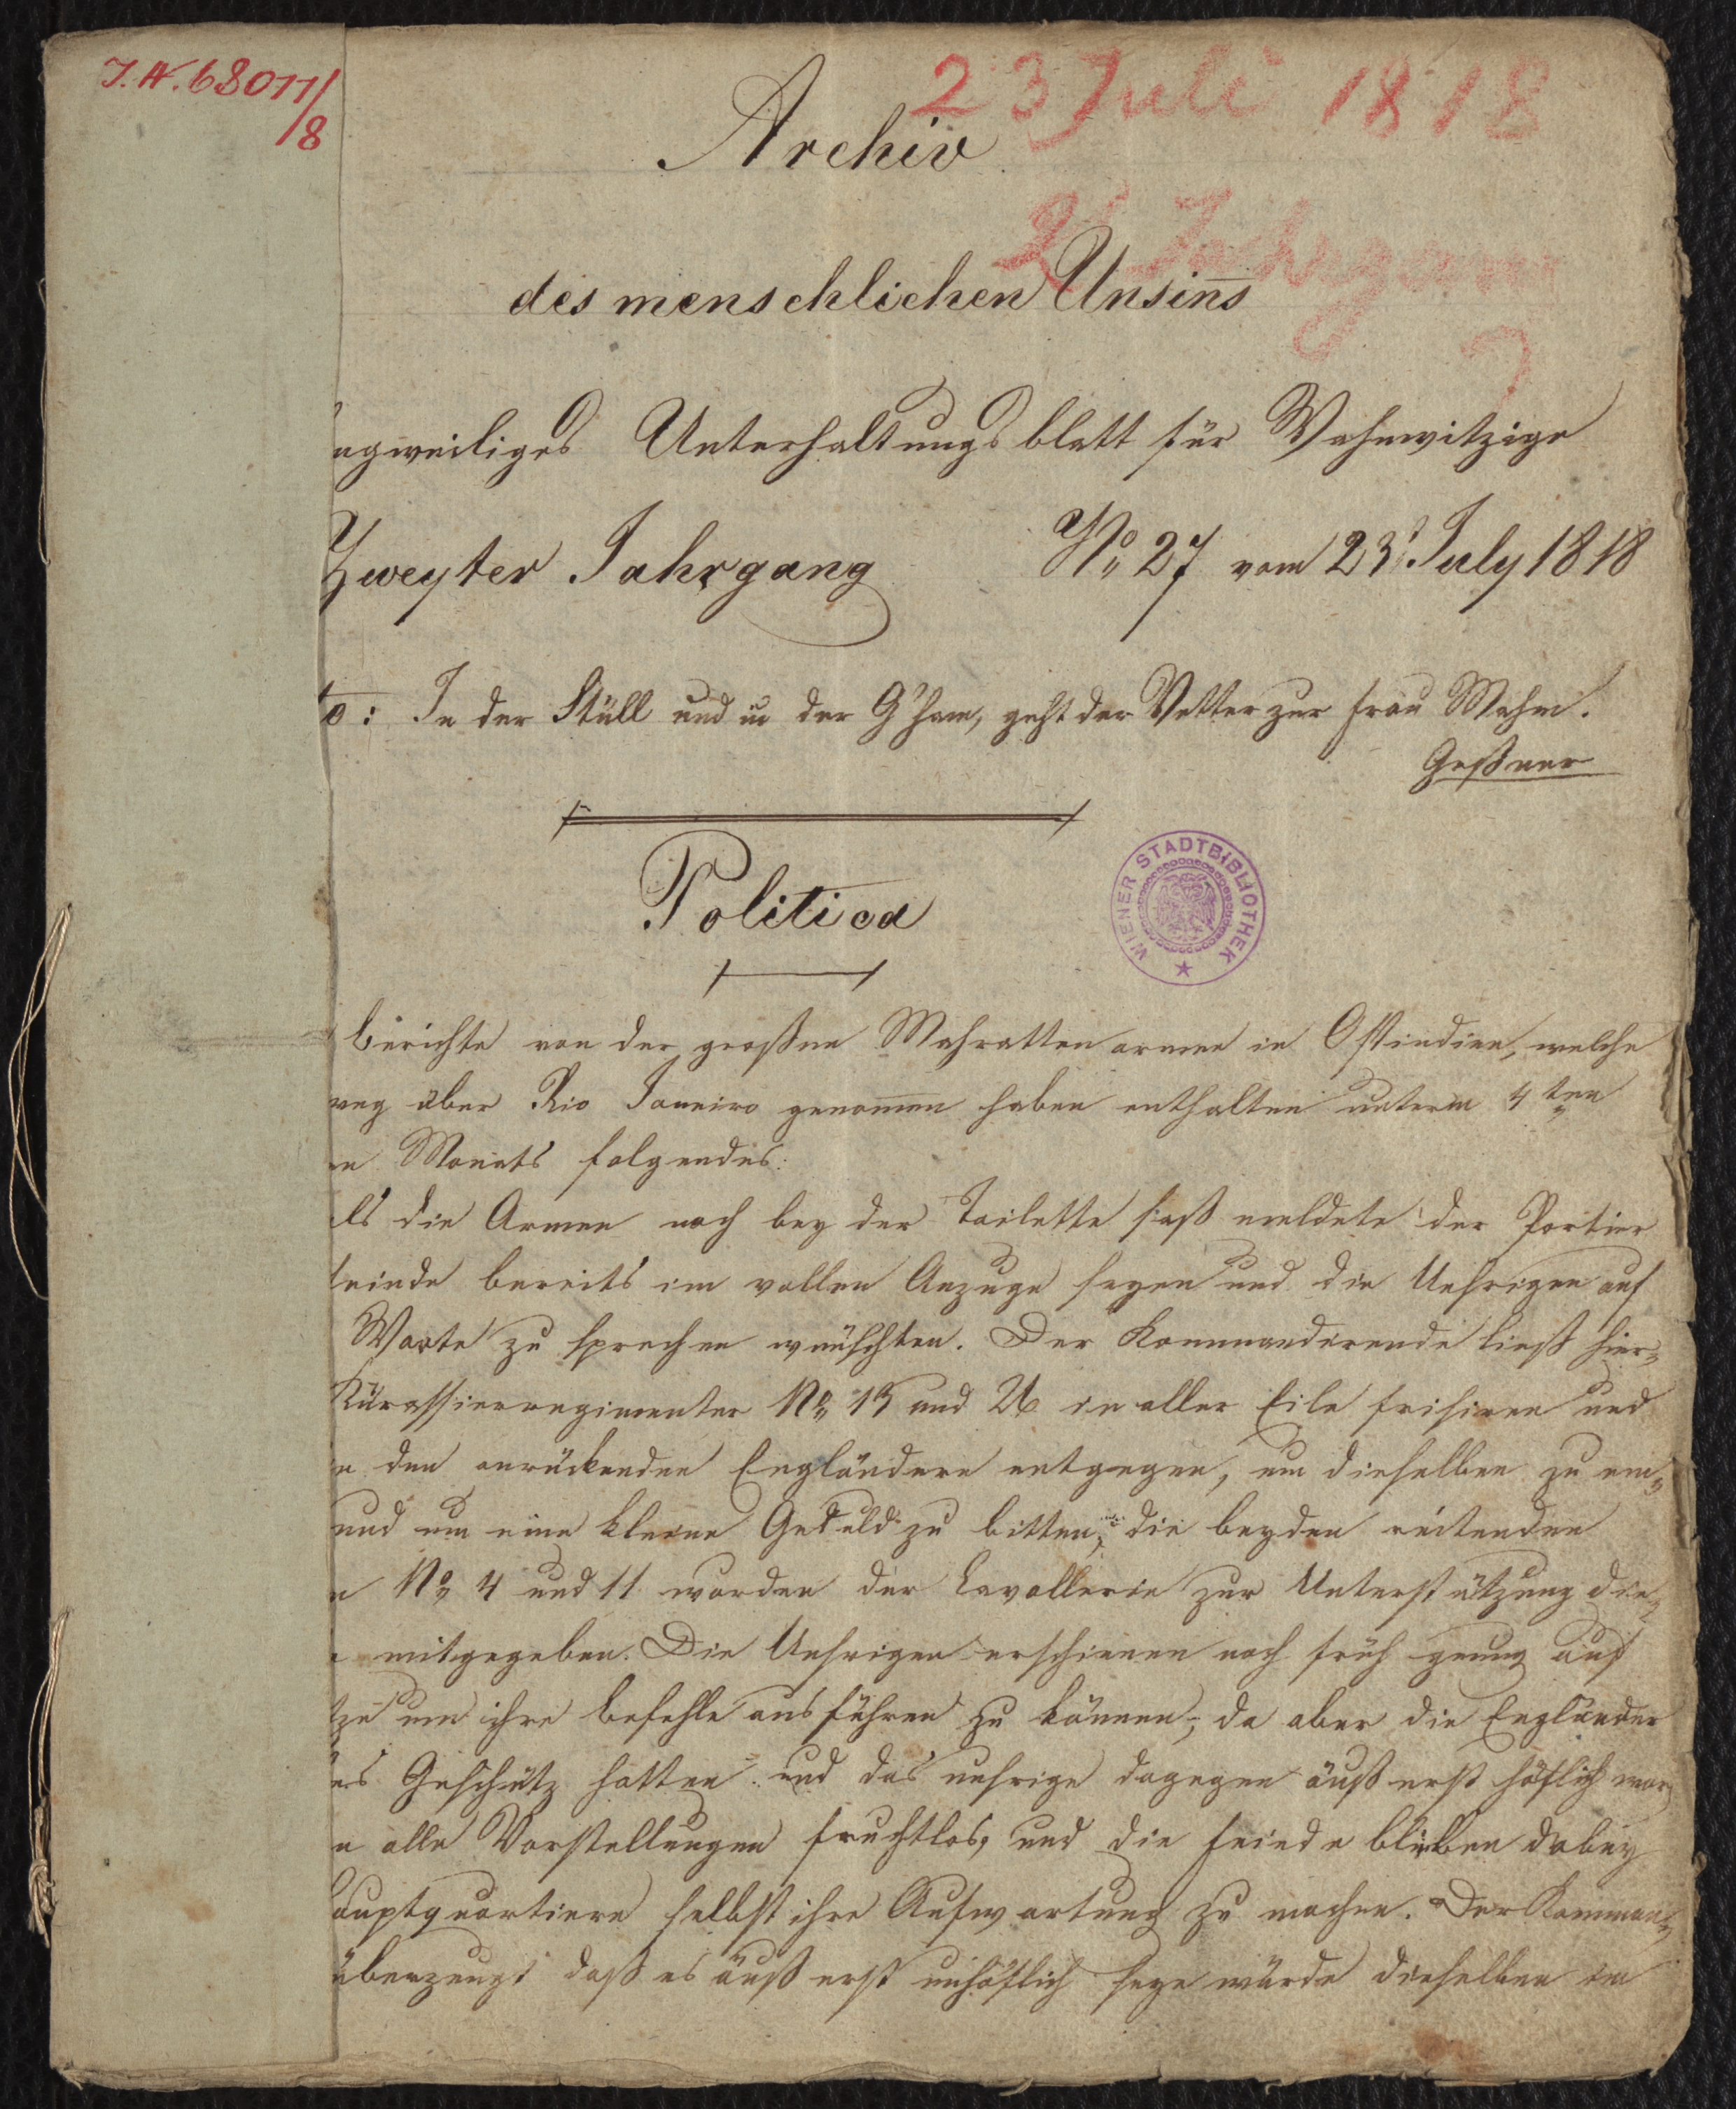 J.N. 68077/8
23 Juli 1818
Archiv
2t Jahrgang
des menschlichen Unsiñs
ngweiliges Unterhaltungsblatt für Wahnwitzige
Zweyter Jahrgang No 27 vom 23t July 1818
to: In der Stüll und in der G'ham, geht der Vetter zur Frau Mahm.
Geßner
Politica
WIENER STADTBIBLIOTHEK
berichte von der großen Mahrattenarmee in Ostindien, welche
weg über Rio Janeiro genom̄en haben enthalten unterm 4ten
n Monats folgendes:
ls die Armee noch bey der Toilette saß meldete der Portier
feinde bereits im vollen Anzuge seyen und die Unsrigen auf
Worte zu sprechen wünschten. Der Kommandirende ließ hier-
Kürassierregimenter No 13 und 26 in aller Eile frisiren und
n den anrückenden Engländern entgegen, um dieselben zu em-
und um eine kleine Geduld zu bitten, die beyden reitenden
n No 4 und 11 wurden der Cavallerie zur Unterstützung die-
mitgegeben. Die Unsrigen erschienen noch früh genug auf
tze um ihre Befehle ausführen zu können, da aber die Engländer
es Geschütz hatten und das unsrige dagegen äußerst höflich war
n alle Vorstellungen fruchtlos, und die Feinde blieben dabey
auptquartiere selbst ihre Aufwartung zu machen. Der Komman-
überzeugt daß es äußerst unhöflich seyn würde dieselben im